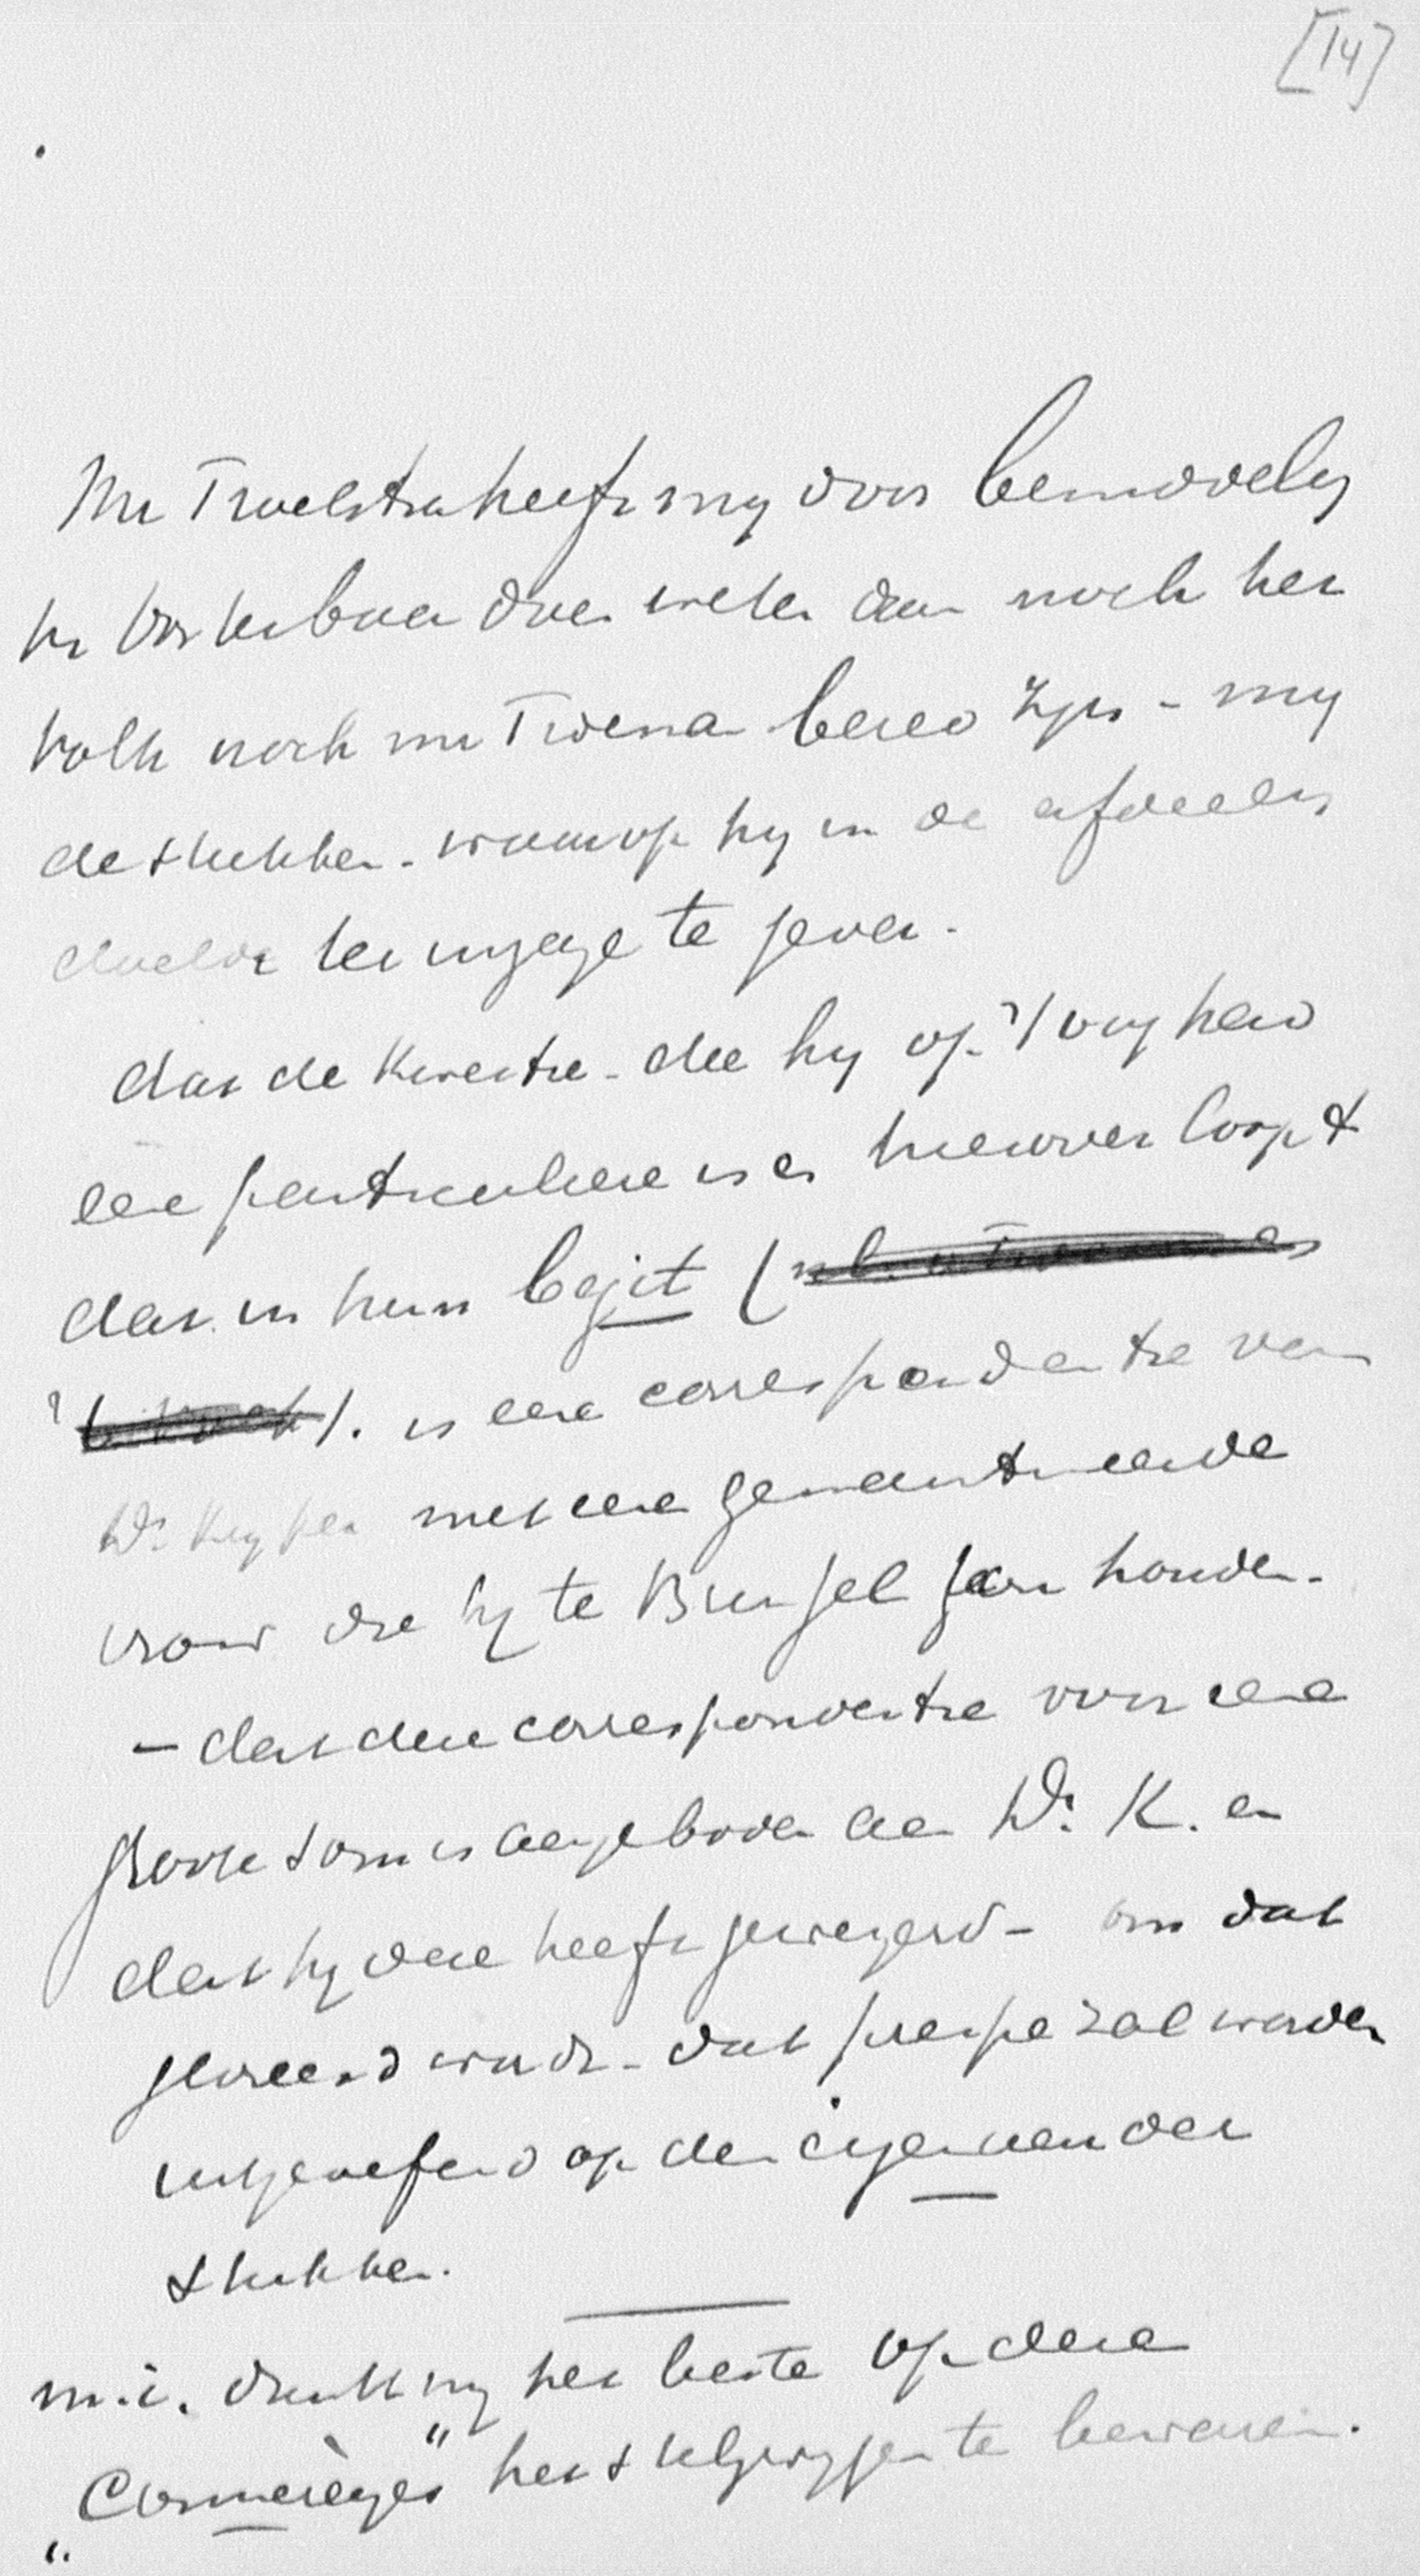 [14]
Mr Troelstra heeft my door bemiddeling
Mr
Volk noch mr Troelstra bereid zyn - my
de stukken - waarop hy in de afdeeling
doelde ter inzage te geven.
dat de kwestie - die hy op 't oog had
een particuliere is en hierover loopt
dat in hun bezit (
). is eene correspondentie van
Dr Kuyper met eene gemainteneerde
vrouw die hy te Brussel zou houden.
- dat deze correspondentie voor eene
groote som is aangeboden aan Dr. K. en
dat hy deze heeft geweigerd - om dat
gevreesd wordt - dat pressie zal worden
uitgeoefend op den eigenaar der
stukken.
m.i. dunkt my het beste op deze
"Commérages" het stilzwygen te bewaren.